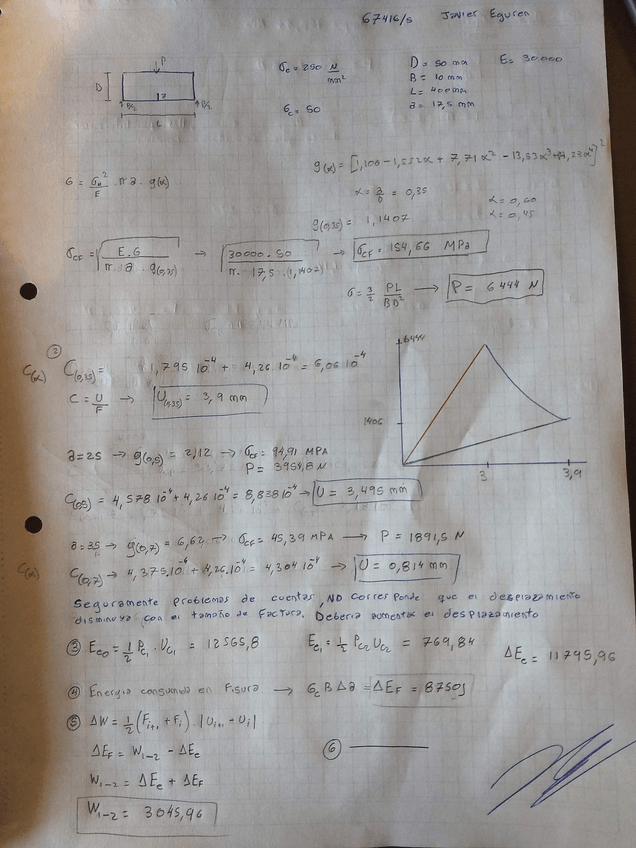 67416/s Javier Eguren
P
D
a
P/2 P/2
L
σe = 250 N/mm²
Gc = 50
D = 50 mm
B = 10 mm
L = 400 mm
a = 17,5 mm
E = 30.000
G = σN²/E . π a . g(α)
g(α) = [1,106 - 1,552α + 7,71α² - 13,53α³ + 14,23α⁴]²
α = a/D = 0,35
g(0,35) = 1,1407
α = 0,60
α = 0,45
σCF = √ E.G / π . a . g(0,35) → √ 30000.50 / π . 17,5 . (1,1407) → σCF = 154,66 MPa
σ = 3/2 PL/BD² → P = 6444 N
②
C(α) C(0,35) = 1,795 10⁻⁴ + 4,26 10⁻⁴ = 6,06 10⁻⁴
C = U/F → U(0,35) = 3,9 mm
6444
1406
3
3,9
a = 25 → g(0,5) = 2,12 → σCF = 94,91 MPA
P = 3954,8 N
C(0,5) = 4,578 10⁻⁴ + 4,26 10⁻⁴ = 8,838 10⁻⁴ → U = 3,495 mm
a = 35 → g(0,7) = 6,62 → σCF = 45,39 MPA → P = 1891,5 N
C(α) C(0,7) → 4,375.10⁻⁶ + 4,26.10⁻⁴ = 4,304 10⁻⁴ → U = 0,814 mm
Seguramente problemas de cuentas, NO corresponde que el desplazamiento
disminuya con el tamaño de factura. Deberia aumentar el desplazamiento
③ Ee0 = 1/2 Pc1 . Uc1 = 12565,8 Ee1 = 1/2 Pc2 Uc2 = 769,84 ΔEe = 11795,96
④ Energia consumida en Fisura → Gc B Δa = ΔEF = 8750J
⑤ ΔW = 1/2 (Fi+1 + Fi) . |Ui+1 - Ui|
ΔEF = W1-2 - ΔEe
⑥
W1-2 = ΔEe + ΔEF
W1-2 = 3045,96